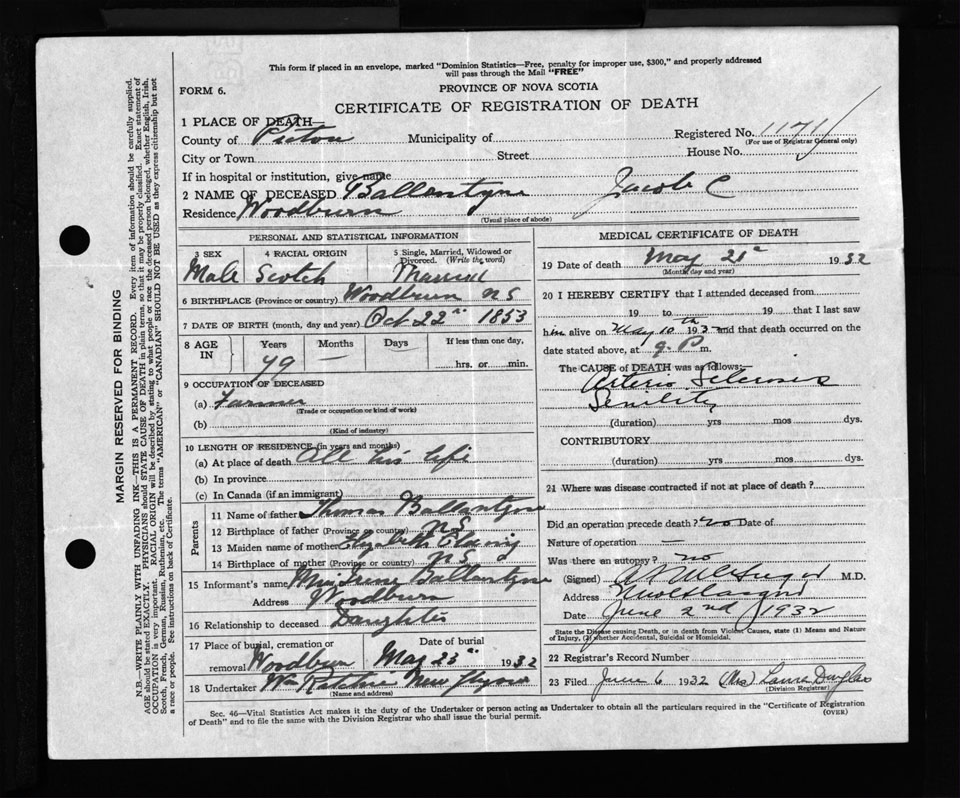 This form if placed in an envelope, marked "Dominion Statistics—Free, penalty for improper use, $300," and properly addressed
will pass through the Mail "FREE"
FORM 6.
PROVINCE OF NOVA SCOTIA
CERTIFICATE OF REGISTRATION OF DEATH
1 PLACE OF DEATH—
County of Pictou Municipality of Registered No. 1171
(For use of Registrar General only)
City or Town Street House No.
If in hospital or institution, give name
2 NAME OF DECEASED Ballantyne Jacob C
Residence Woodburn
(Usual place of abode)
PERSONAL AND STATISTICAL INFORMATION
3 SEX 4 RACIAL ORIGIN 5 Single, Married, Widowed or
Divorced. (Write the word)
Male Scotch Married
6 BIRTHPLACE (Province or country) Woodburn NS
7 DATE OF BIRTH (month, day and year) Oct 22nd 1853
8 AGE IN Years Months Days If less than one day,
79 — hrs. or min.
9 OCCUPATION OF DECEASED
(a) Farmer
(Trade or occupation or kind of work)
(b)
(Kind of industry)
10 LENGTH OF RESIDENCE (in years and months)
(a) At place of death All his life
(b) In province
(c) In Canada (if an immigrant)
Parents
11 Name of father Thomas Ballantyne
12 Birthplace of father (Province or country) NS
13 Maiden name of mother Elizabeth
14 Birthplace of mother (Province or country) NS
15 Informant's name Irene Ballantyne
Address Woodburn
16 Relationship to deceased Daughter
17 Place of burial, cremation or Date of burial
removal Woodburn May 23 1932
18 Undertaker Wm Ritchie New Glasgow
(Name and address)
MEDICAL CERTIFICATE OF DEATH
19 Date of death May 21 1932
(Month, day and year)
20 I HEREBY CERTIFY that I attended deceased from
19 to 19 that I last saw
him alive on May 10th 193 and that death occurred on
date stated above, at 9. P m.
The CAUSE of DEATH was as follows:
Arterio Sclerosis
Senility
(duration) yrs mos dys.
CONTRIBUTORY
(duration) yrs mos dys.
21 Where was disease contracted if not at place of death?
Did an operation precede death? no Date of
Nature of operation —
Was there an autopsy? no
(Signed) M.D.
Address New Glasgow
Date June 2nd 1932
State the Disease causing Death, or in death from Violent Causes, state (1) Means and Nature
of Injury, (2) whether Accidental, Suicidal or Homicidal.
22 Registrar's Record Number
23 Filed June 6 1932 (Mrs) Laura Douglas
(Division Registrar)
Sec. 46—Vital Statistics Act makes it the duty of the Undertaker or person acting as Undertaker to obtain all the particulars required in the "Certificate of Registration
of Death" and to file the same with the Division Registrar who shall issue the burial permit.
(OVER)
MARGIN RESERVED FOR BINDING
N.B.—WRITE PLAINLY WITH UNFADING INK—THIS IS A PERMANENT RECORD. Every item of information should be carefully supplied.
AGE should be stated EXACTLY. PHYSICIANS should STATE CAUSE OF DEATH in plain terms, so that it may be properly classified. Exact statement of
OCCUPATION is very important. RACIAL ORIGIN will be described by stating to what people or race the deceased person belonged, whether English, Irish,
Scotch, French, German, Russian, Ruthenian, etc. The terms "AMERICAN" or "CANADIAN" SHOULD NOT BE USED as they express citizenship but not
a race or people. See instructions on back of Certificate.